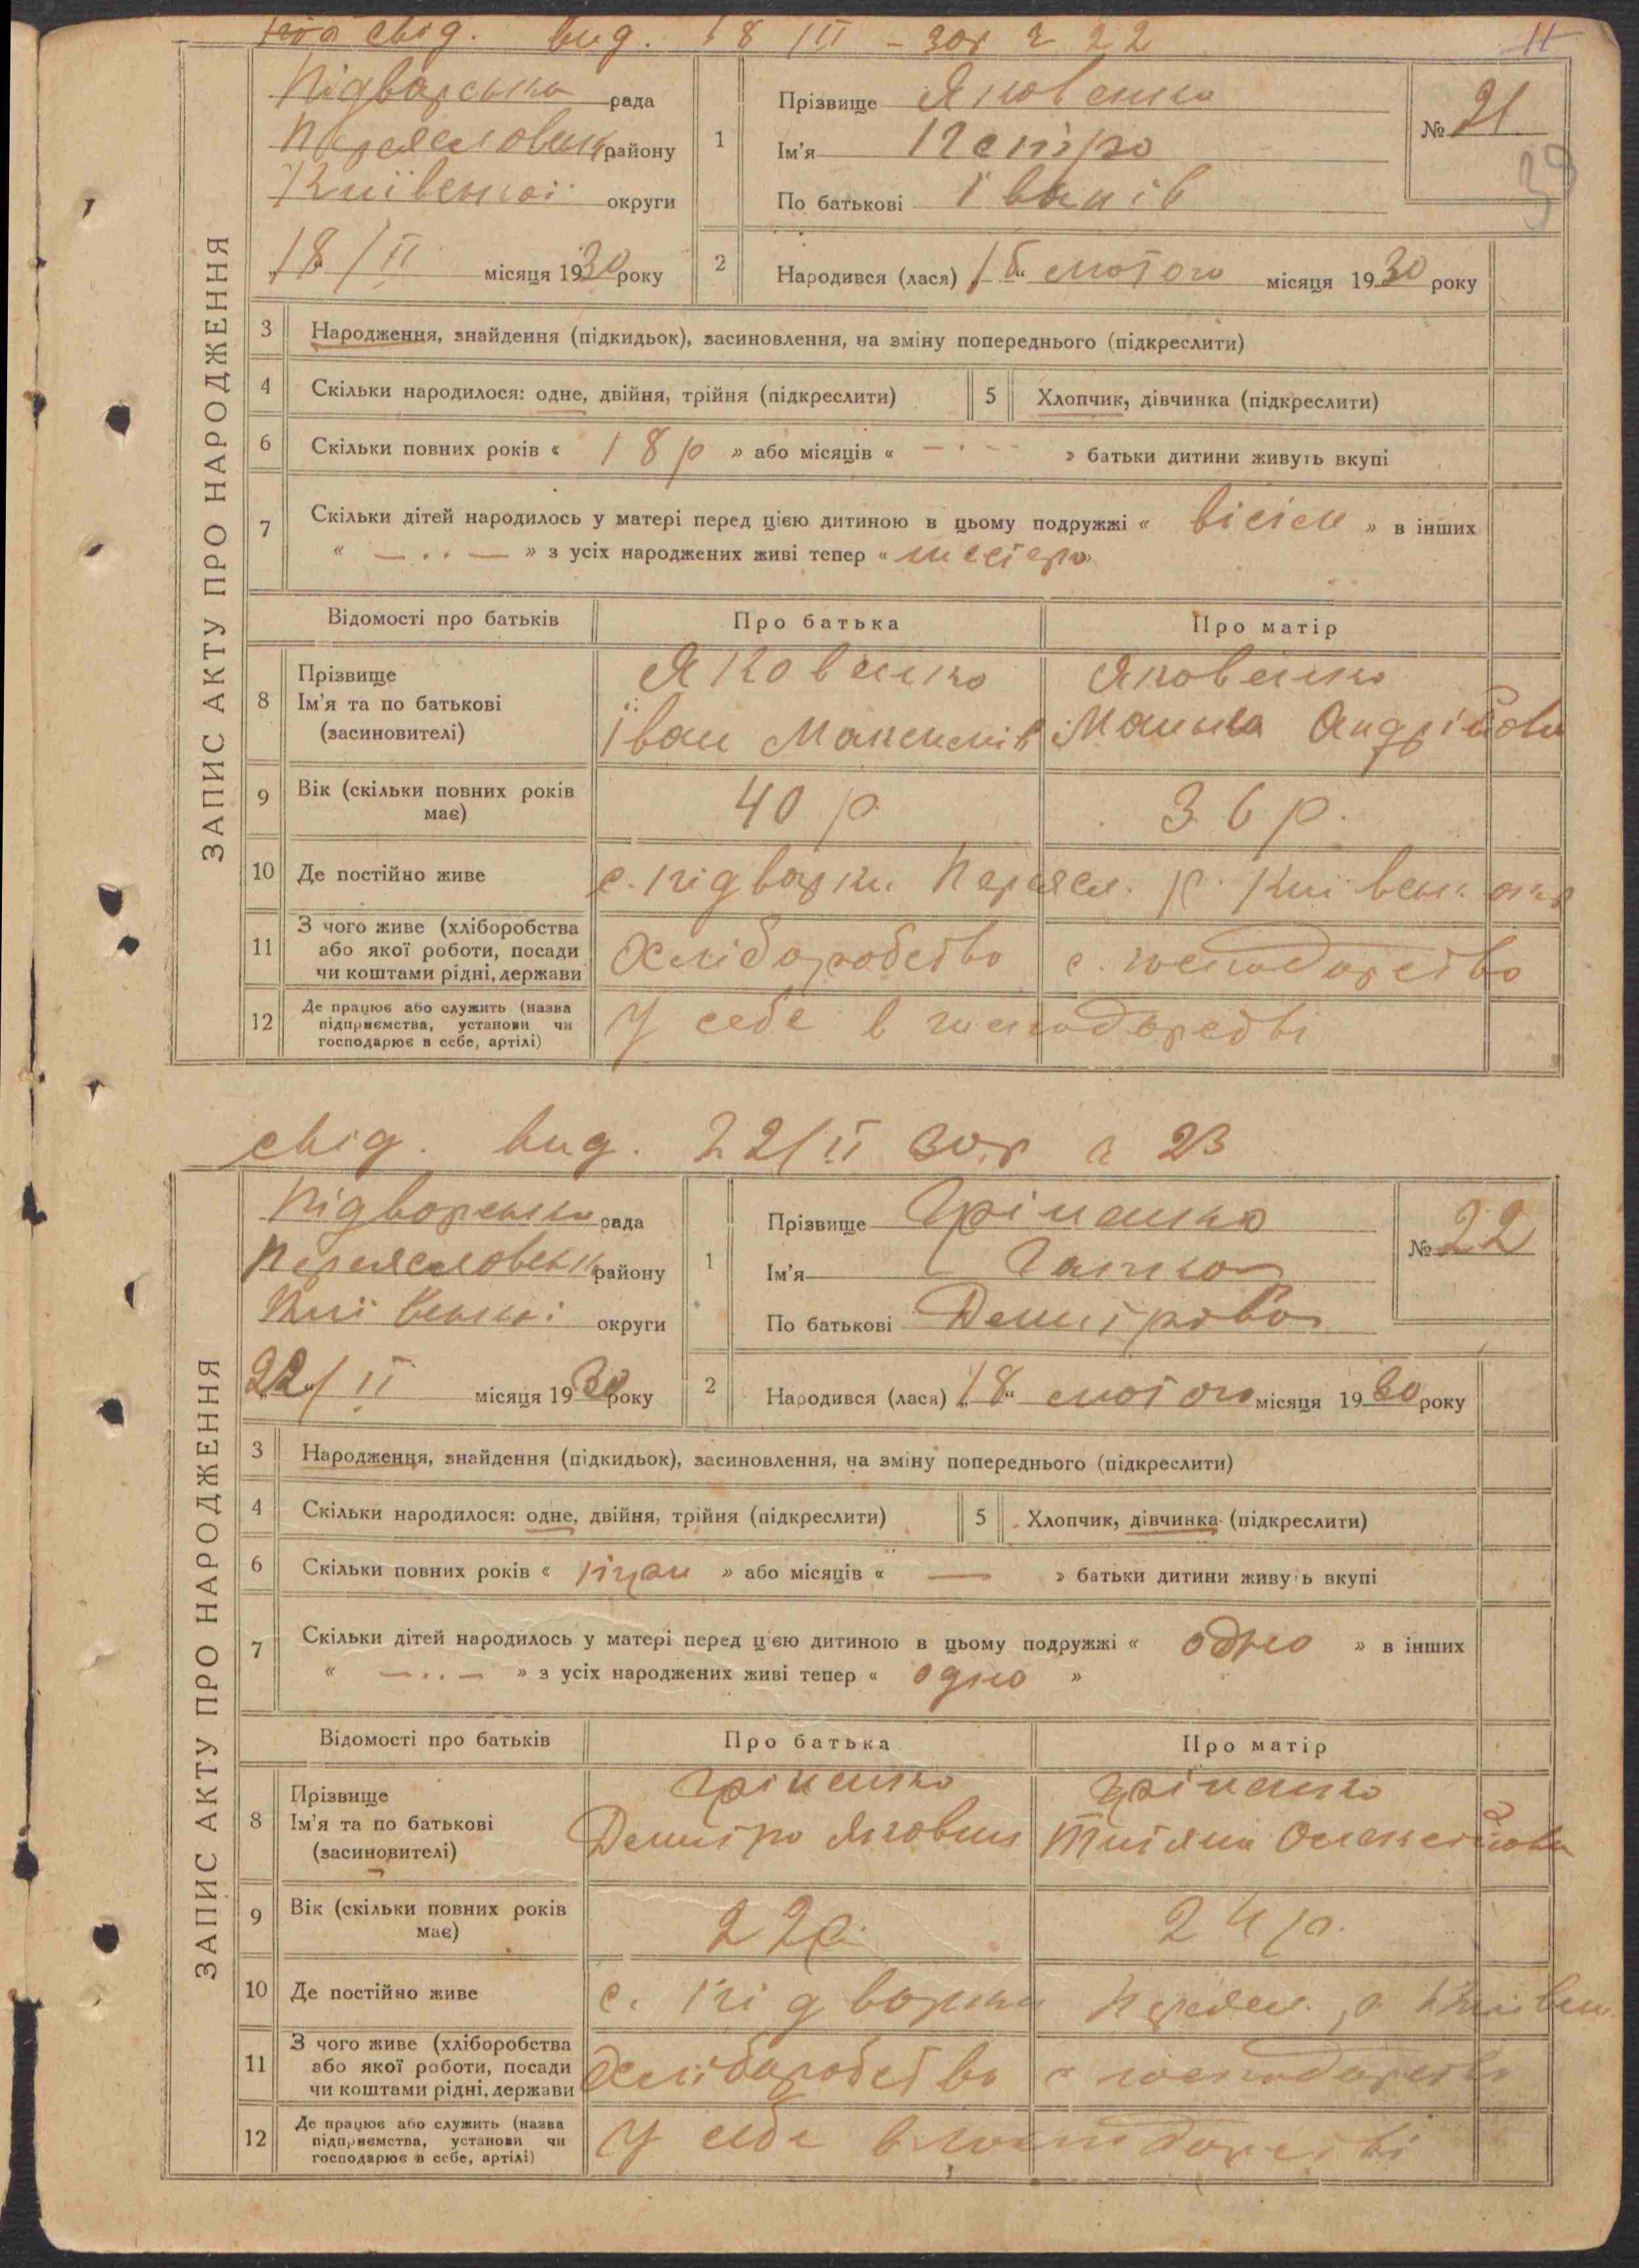 свід. вид. 18 III – 30 р ч 22
11
Підварська рада
Переясловськ району
Київської округи
18/II місяця 1930 року
ЗАПИС АКТУ ПРО НАРОДЖЕННЯ
1 Прізвище Яковенко
Ім'я Петро
По батькові Іванів
№ 21
39
2 Народився (лася) „15“ лютого місяця 1930 року
3 Народження, знайдення (підкидьок), засиновлення, на зміну попереднього (підкреслити)
4 Скільки народилося: одне, двійня, трійня (підкреслити) 5 Хлопчик, дівчинка (підкреслити)
6 Скільки повних років « 18 р » або місяців « — · — » батьки дитини живуть вкупі
7 Скільки дітей народилось у матері перед цією дитиною в цьому подружжі « вісім » в інших
« — . . — » з усіх народжених живі тепер « шестеро »
Відомості про батьків Про батька Про матір
8 Прізвище Яковенко Яковенко
Ім'я та по батькові Іван Максимів Мотря Андріївна
(засиновителі)
9 Вік (скільки повних років має) 40 р 36 р.
10 Де постійно живе с. Підварки Переясл. р. Київськ. окр
11 З чого живе (хліборобства або якої роботи, посади чи коштами рідні, держави Хліборобство с. господарство
12 Де працює або служить (назва підприємства, установи чи господарює в себе, артілі) У себе в господарстві
свід. вид. 22/II 30 р ч 23
Підворська рада
Переясловськ району
Київської округи
22/II місяця 1930 року
ЗАПИС АКТУ ПРО НАРОДЖЕННЯ
1 Прізвище Гріненко
Ім'я Ганна
По батькові Демитрова
№ 22
2 Народився (лася) „18“ лютого місяця 1930 року
3 Народження, знайдення (підкидьок), засиновлення, на зміну попереднього (підкреслити)
4 Скільки народилося: одне, двійня, трійня (підкреслити) 5 Хлопчик, дівчинка (підкреслити)
6 Скільки повних років « » або місяців « — » батьки дитини живуть вкупі
7 Скільки дітей народилось у матері перед цією дитиною в цьому подружжі « одно » в інших
« — . . — » з усіх народжених живі тепер « одно »
Відомості про батьків Про батька Про матір
8 Прізвище Гріненко Гріненко
Ім'я та по батькові Демитро Якович Титяна Олексійовна
(засиновителі)
9 Вік (скільки повних років має) 22 р. 24 р.
10 Де постійно живе с. Підворки Переясл. р. Київськ.
11 З чого живе (хліборобства або якої роботи, посади чи коштами рідні, держави Хліборобство с господарство
12 Де працює або служить (назва підприємства, установи чи господарює в себе, артілі) У себе в господарстві